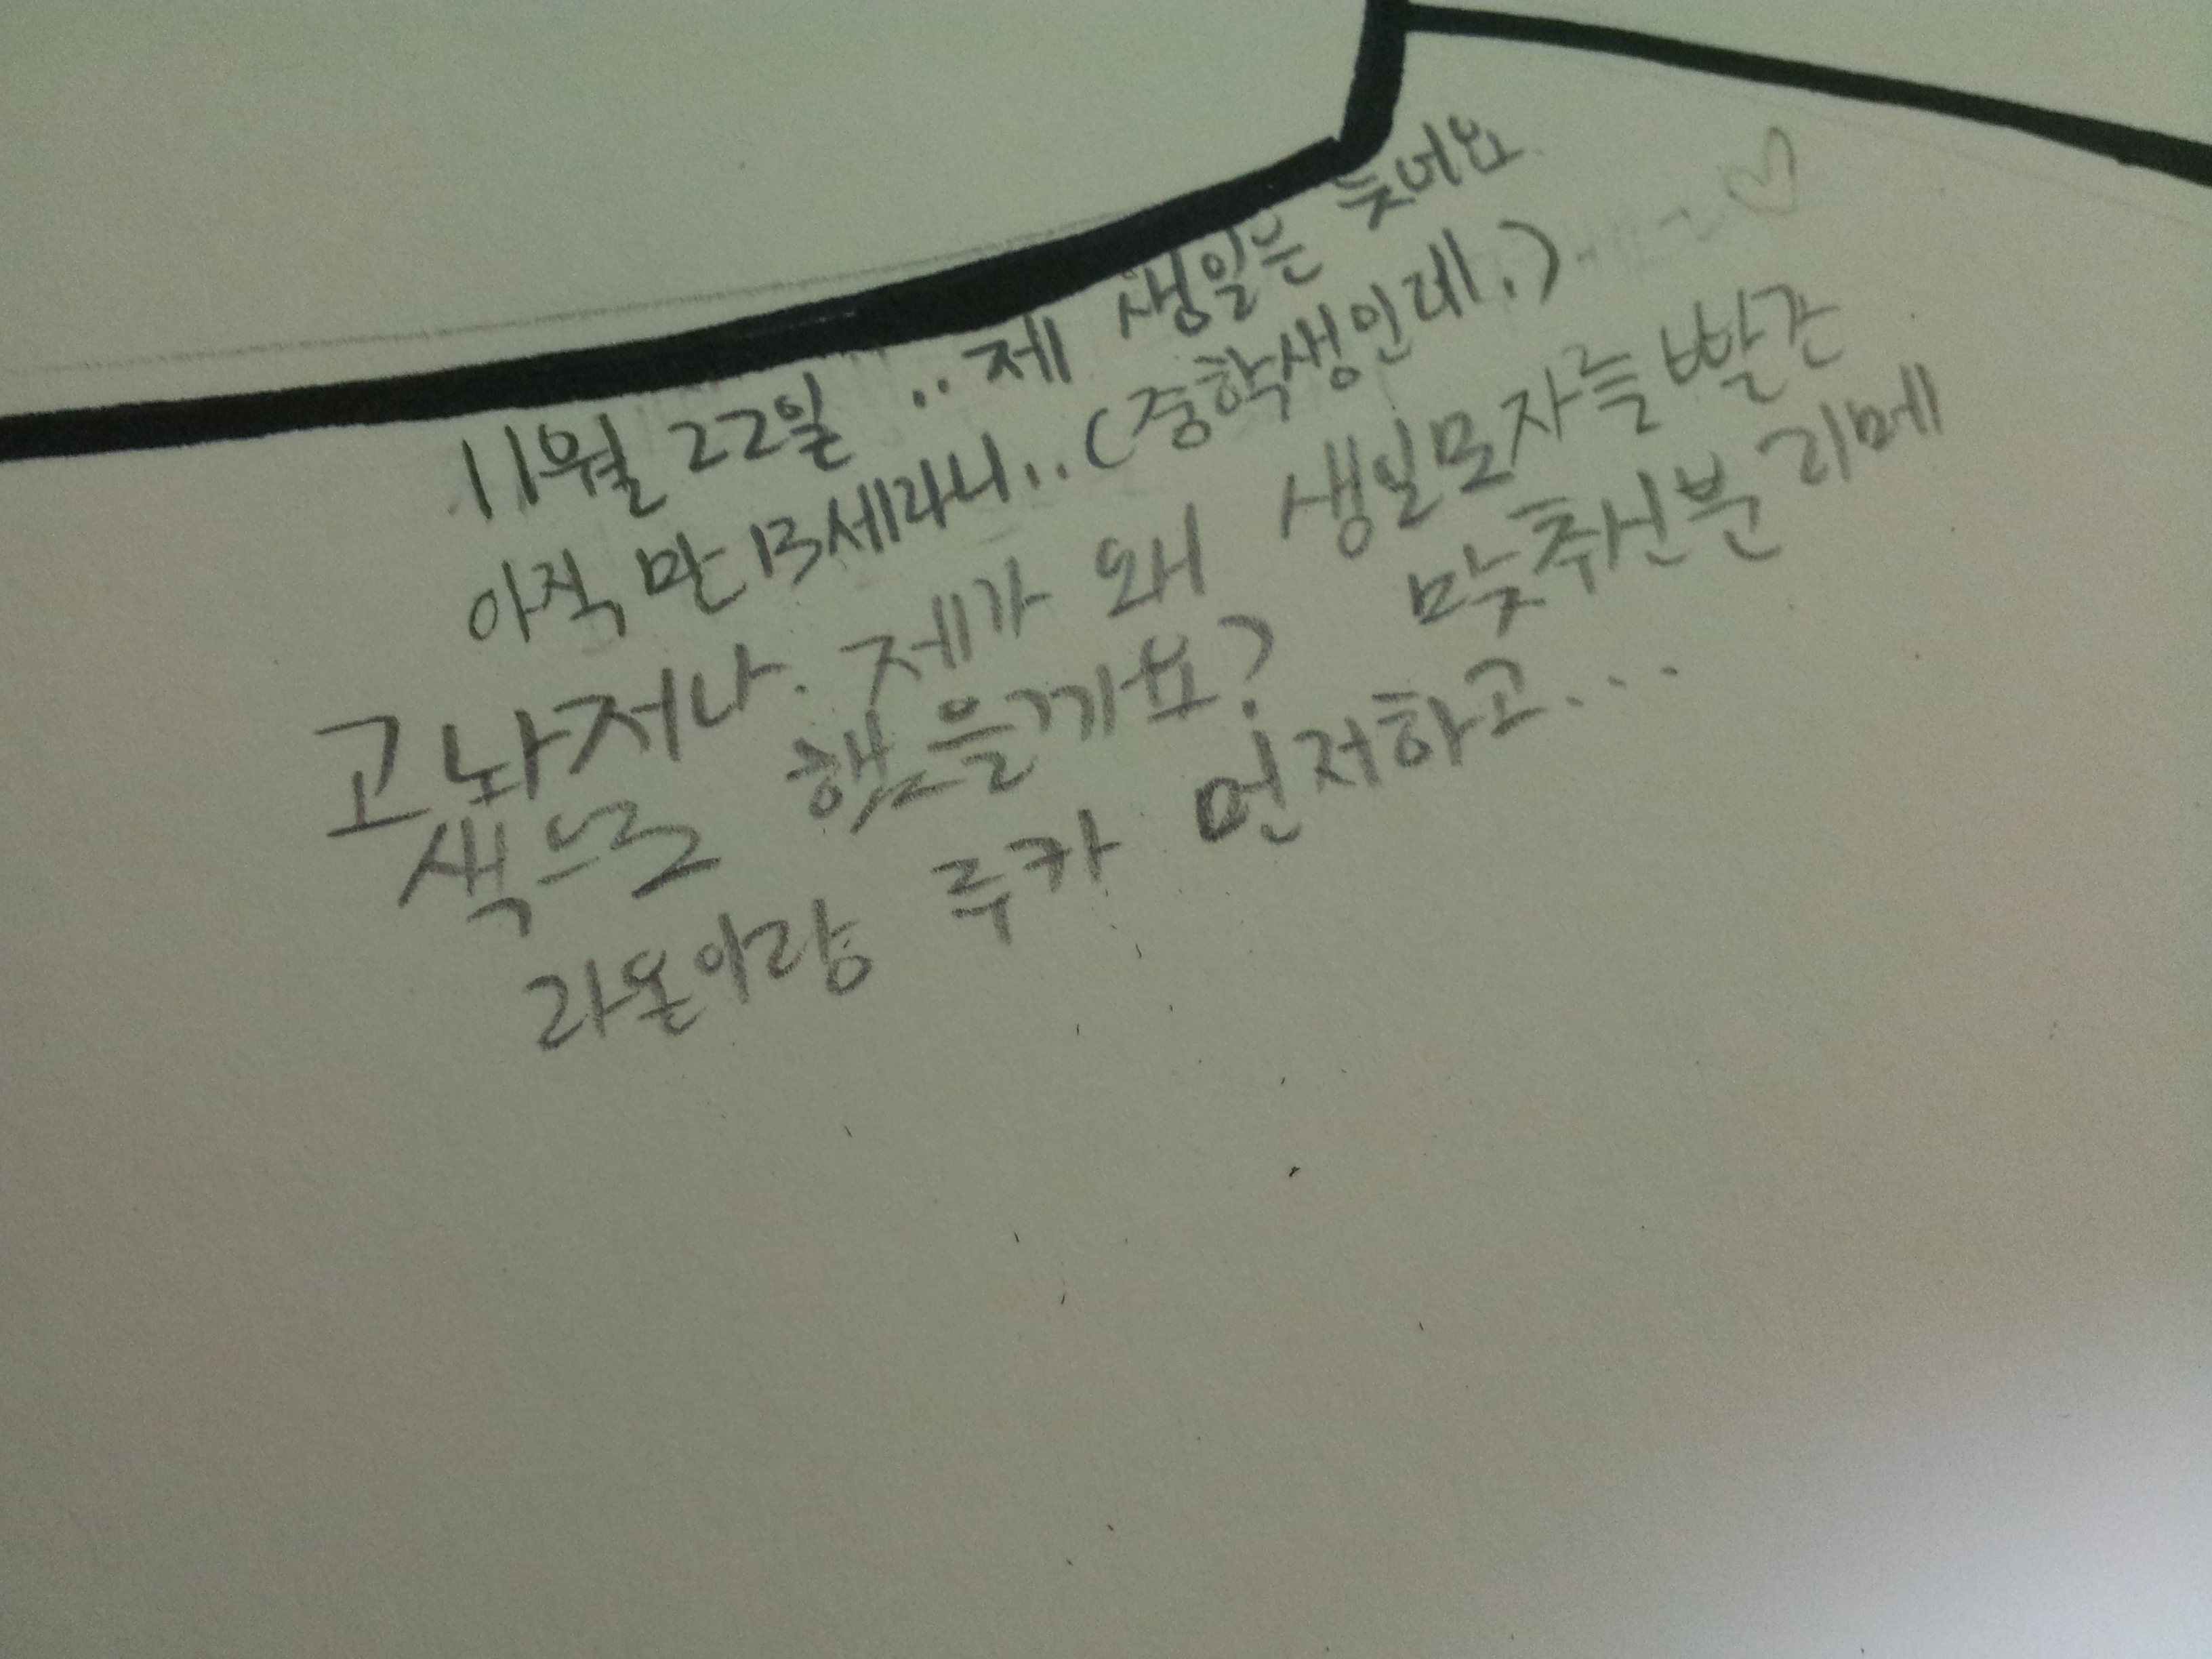 11월 22일 .. 제 생일은 늦네요
아직 만 13세라니..(중학생인데.)
고놔저나. 제가 왜 생일모자를 빨간
색으로 했을까요? 맞춰신분 리메
라온아랑 루카 먼저하고...